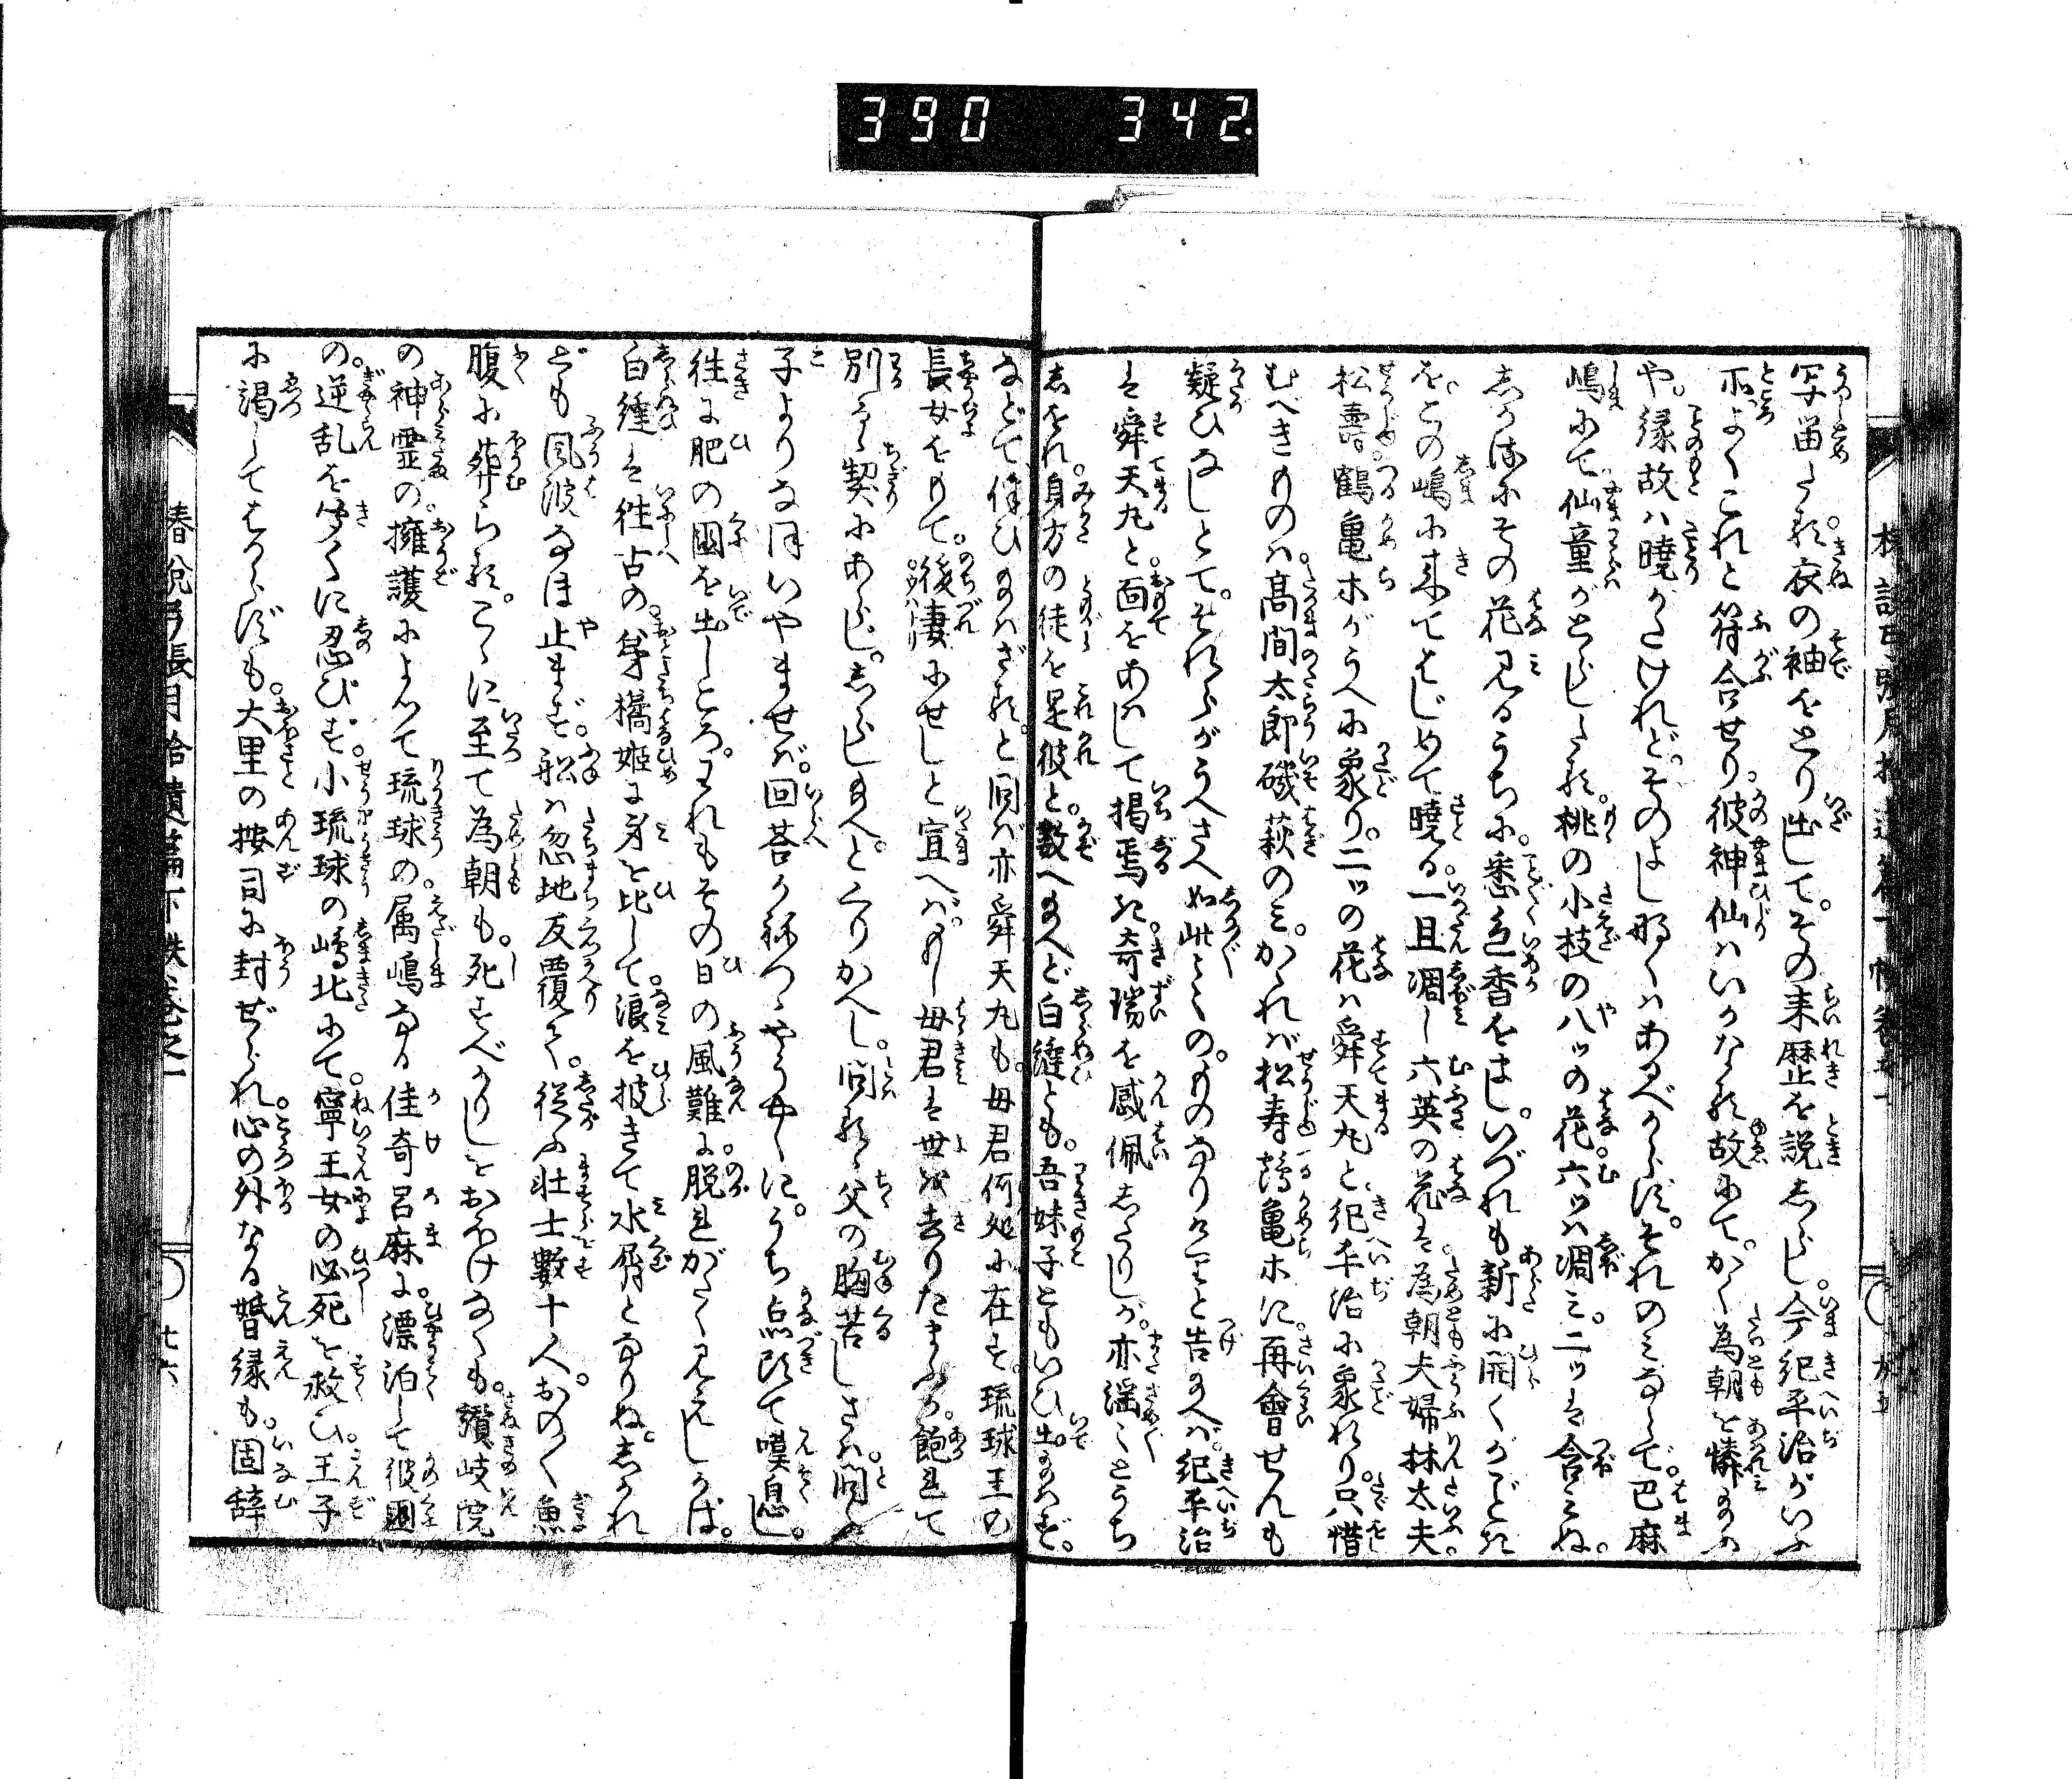 390 342.
写畄たる衣の袖をとり出して。その来歴を説しらし。今紀平治がいふ
所よくこれと符合せり。彼神仙はいかなる故にて。かく為朝を憐給ふ
や。縁故は暁かたけれど。そのよし縡くはあるべからず。それのみならで。巴麻
嶋にて。仙童がとらしたる。桃の小枝の八ツの花。六ツは凋み。二ツは含みね。
しかるにその花見るうちに。悉色香をまし。いづれも新に開くがごとき
を。この嶋に来てはじめて暁る。一旦凋し六英の花は。為朝夫婦林太夫。
松壽。鶴亀ホがうへに象り。二ツの花は舜天丸と。紀平治に象れり。只惜
むべきものは。高間太郎磯萩のみ。かゝれば松寿鶴亀ホに。再會せんも
疑ひなしとて。それらがうへさへ如此〻の。ものなりけりと告給へば。紀平治
は舜天丸と。面をあはして掲焉き。奇瑞を感佩したりしが。亦潸〻とうち
しをれ。身方の徒を是彼と。数へ給へど白縫とも。吾妹子ともいひ出給はず。
などて併ひ給はざると問ば亦舜天丸も。母君何処に在す。琉球王の
長女をもて。後妻にせしと宣へば。もし母君は世を去りたまふか。飽まで
別るゝ契にあらじ。しらし給へとくりかへし。問るゝ父の胸苦しさは。問ふ
子よりなほいやませば。回荅かねつゝやうやくに。うち点頭て嘆息し。
徃に肥の國を出しころ。われもその日の風難に。脱れがたく見えしかば。
白縫は徃古の。弟橘姫に身を比して。浪を披きて水屑となりぬ。しかれ
ども風波なほ止まず。船は忽地反覆て。従ふ壮士數十人。おの〳〵魚
腹に葬らる。こゝに至て為朝も。死すべかりしをおふけなくも。讃岐院
の神霊の。擁護によつて琉球の。属嶋なる佳奇呂麻に。漂泊して彼國
の。逆乱を聞くに忍びず。小琉球の嶋北にて。寧王女の必死を救ひ。王子
に謁してはからずも。大里の按司に封ぜられ。心の外なる婚縁も。固辞
椿説弓張月拾遺篇下帙巻之一
〇 廿六